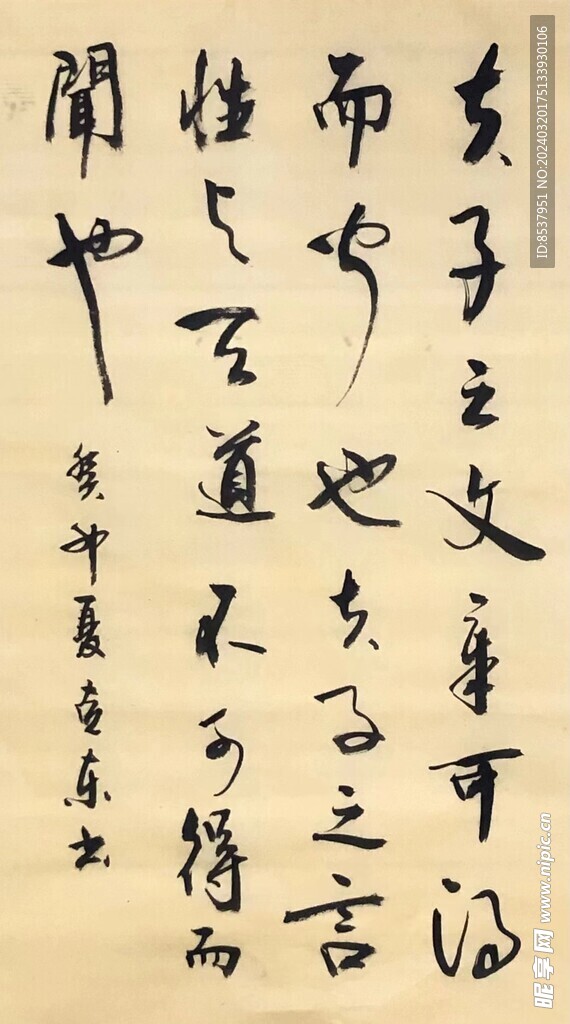 夫子之文章可得
而聞也夫子之言
性与天道不可得而
聞也
癸卯夏克东书
ID:8537951 NO:20240320175133930106
昵享网 www.nipic.cn